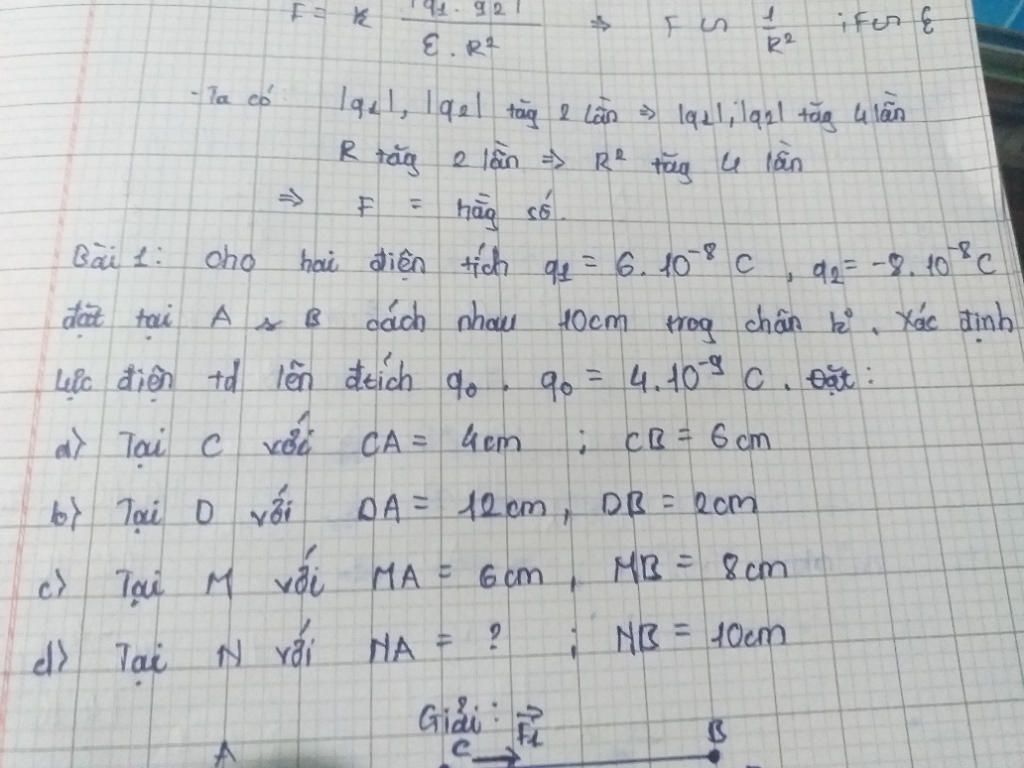 F = k |q1 . q2| / ε . R² ⇒ F ∽ 1/R² ; F ∽ ε
- Ta có: |q1|, |q2| tăg 2 lần ⇒ |q1|, |q2| tăg 4 lần
R tăg 2 lần ⇒ R² tăg 4 lần
⇒ F = hằg số.
Bài 1: Cho hai điện tích q1 = 6.10⁻⁸ C, q2 = -8.10⁻⁸ C
đặt tại A & B cách nhau 10cm trog chân k°. Xác định
lực điện td lên đtích q0. q0 = 4.10⁻⁹ C. Đặt:
a) Tại C với CA = 4cm ; CB = 6cm
b) Tại D với DA = 12cm, DB = 2cm
c) Tại M với MA = 6cm, MB = 8cm
d) Tại N với NA = ? ; NB = 10cm
Giải:
A C F1 B